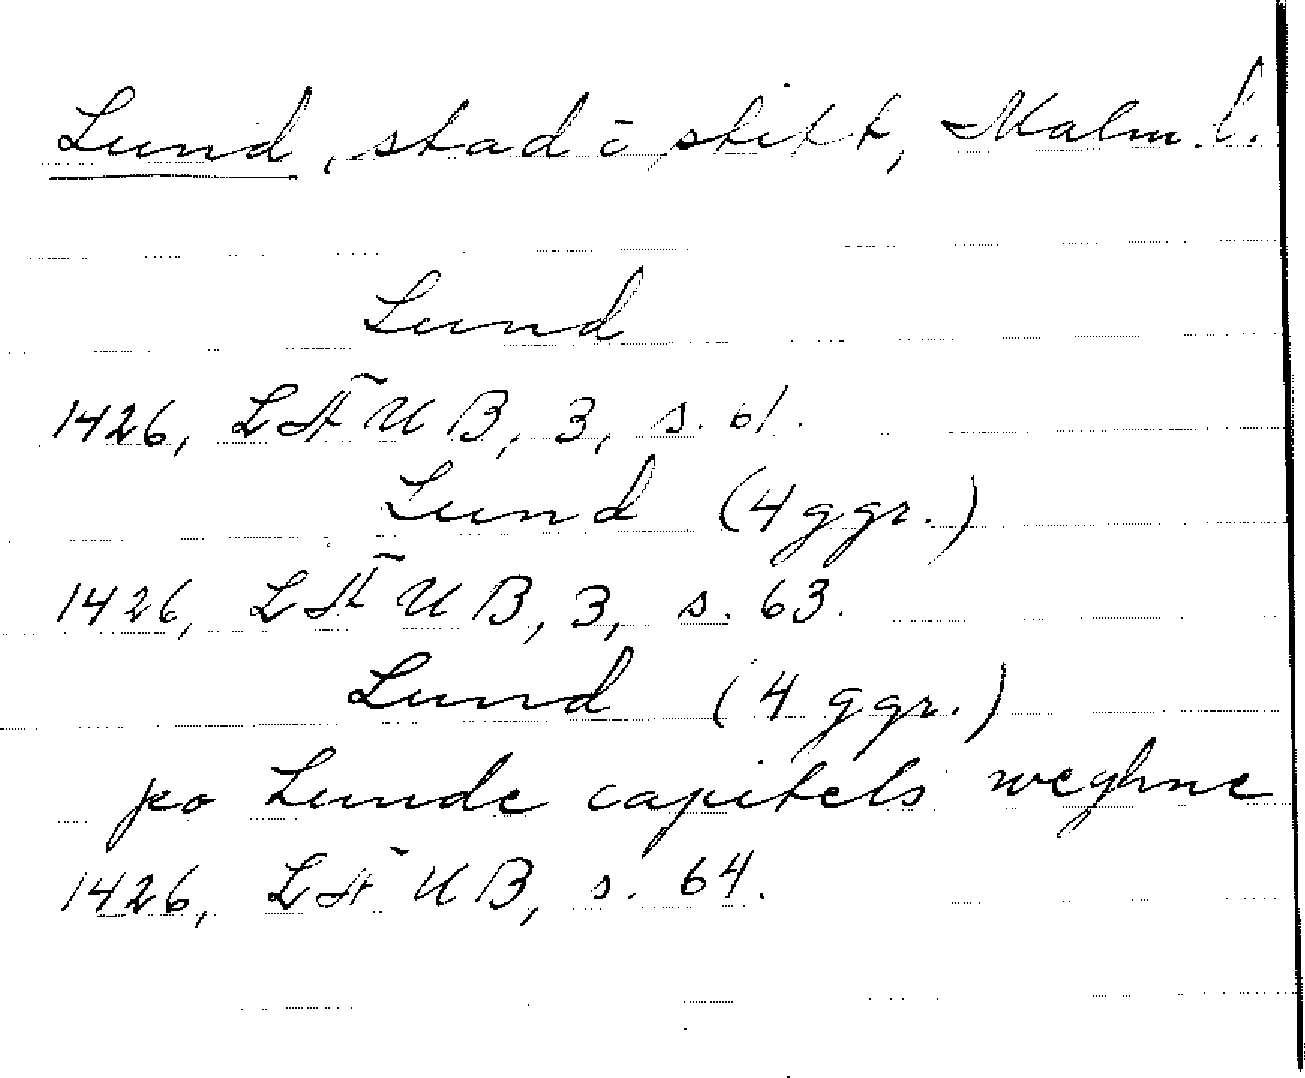 Lund, stad ō stift, Malm. l.
Lund
1426, LÄUB, 3, s. 61.
Lund (4 ggr.)
1426, LÄUB, 3, s. 63.
Lund (4 ggr.)
po Lunde capitels weghne
1426, LÄUB, s. 64.